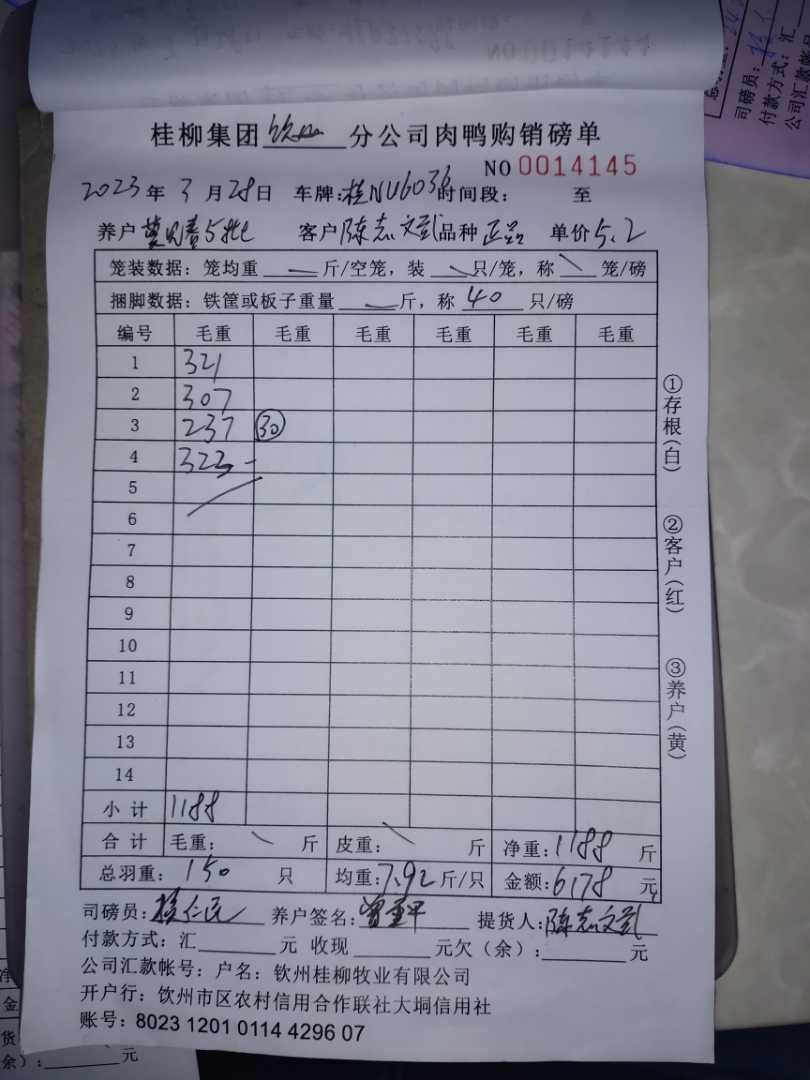 桂柳集团钦州分公司肉鸭购销磅单
NO 0014145
2023年3月28日 车牌:桂NU6036时间段: 至
养户 5批 客户陈志文武品种正品 单价5.2
笼装数据: 笼均重 — 斤/空笼, 装 只/笼, 称 笼/磅
捆脚数据: 铁筐或板子重量 — 斤, 称 40 只/磅
编号 毛重 毛重 毛重 毛重 毛重 毛重
1 321
2 307
3 237 30
4 323 -
5
6
7
8
9
10
11
12
13
14
小计 1188
合计 毛重: 斤 皮重: 斤 净重:1188 斤
总羽重: 150 只 均重:7.92斤/只 金额:6178元
司磅员: 养户签名: 提货人:陈志文武
付款方式: 汇 元 收现 元欠(余): 元
公司汇款帐号: 户名: 钦州桂柳牧业有限公司
开户行: 钦州市区农村信用合作联社大垌信用社
账号: 8023 1201 0114 4296 07
①存根(白)
②客户(红)
③养户(黄)
司磅员:
付款方式: 汇
公司汇款帐
元